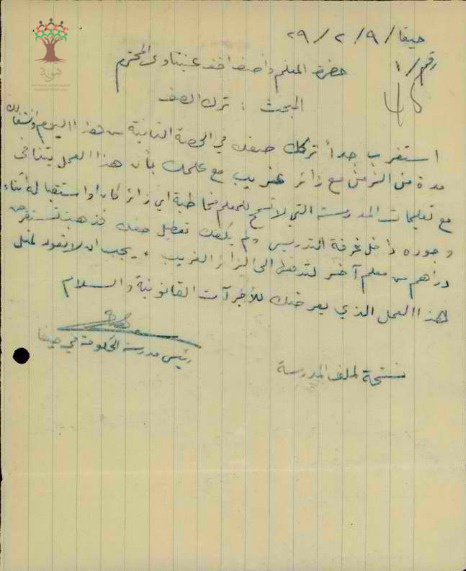 حيفا / ٩ / ٢ / ٢٩
رقم / ١
حضرة المعلم واصف افندي عنبتاوي المحترم
البحث : ترك الصف
استغرب جداً تركك صفك في الحصة الثانية من هذا اليوم
مدة من الزمن مع زائر غريب مع علمك بأن هذا العمل يتنافى
مع تعليمات المدرسة التي لا تسمح للمعلم مخاطبة اي زائر كان او استقباله أثناء
وجوده داخل غرفة التدريس ولم يكفك تعطيل صفك فذهبت
دراهم من معلم آخر لتدفعها الى الزائر الغريب . يجب ان لا تعود لمثل
هذا العمل الذي يعرضك للأجرآت القانونية والسلام
رئيس مدرسة الحكومة في حيفا
نسخة لملف المدرسة
هوية